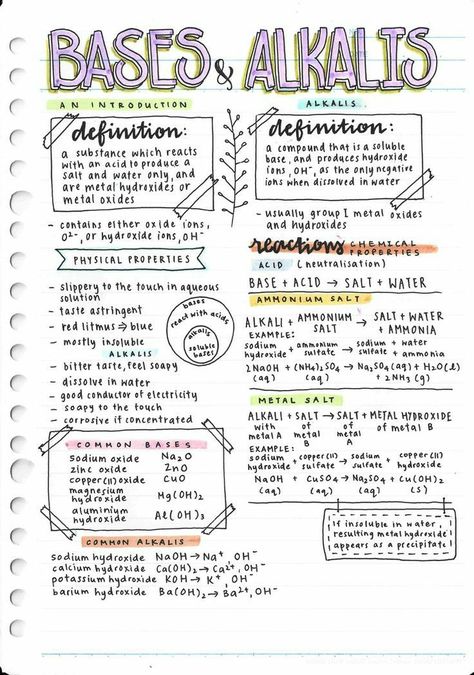 BASES & ALKALIS
AN INTRODUCTION
definition:
a substance which reacts
with an acid to produce a
salt and water only, and
are metal hydroxides or
metal oxides
- contains either oxide ions,
O²⁻, or hydroxide ions, OH⁻
PHYSICAL PROPERTIES
- slippery to the touch in aqueous
solution
- taste astringent
- red litmus ⇒ blue
- mostly insoluble
bases
react with acids
alkalis
soluble
bases
ALKALIS
- bitter taste, feel soapy
- dissolve in water
- good conductor of electricity
- soapy to the touch
- corrosive if concentrated
COMMON BASES
sodium oxide Na₂O
zinc oxide ZnO
copper(II) oxide CuO
magnesium
hydroxide Mg(OH)₂
aluminium
hydroxide Al(OH)₃
COMMON ALKALIS
sodium hydroxide NaOH → Na⁺, OH⁻
calcium hydroxide Ca(OH)₂ → Ca²⁺, OH⁻
potassium hydroxide KOH → K⁺, OH⁻
barium hydroxide Ba(OH)₂ → Ba²⁺, OH⁻
ALKALIS
definition:
a compound that is a soluble
base, and produces hydroxide
ions, OH⁻, as the only negative
ions when dissolved in water
- usually group I metal oxides
and hydroxides
reactions CHEMICAL
PROPERTIES
ACID (neutralisation)
BASE + ACID → SALT + WATER
AMMONIUM SALT
ALKALI + AMMONIUM SALT → SALT + WATER + AMMONIA
EXAMPLE:
sodium hydroxide + ammonium sulfate → sodium sulfate + water + ammonia
2NaOH + (NH₄)₂SO₄ → Na₂SO₄(aq) + H₂O(l)
(aq) (aq) + 2NH₃(g)
METAL SALT
ALKALI + SALT → SALT + METAL HYDROXIDE
with of of of metal B
metal A metal metal
B A
EXAMPLE:
sodium hydroxide + copper(II) sulfate → sodium sulfate + copper(II) hydroxide
NaOH + CuSO₄ → Na₂SO₄ + Cu(OH)₂
(aq) (aq) (aq) (s)
If insoluble in water,
resulting metal hydroxide
appears as a precipitate!